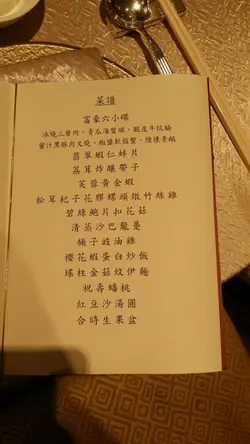 菜譜
富豪六小碟
冰燒三層肉，青瓜海蜇頭，脆皮牛坑腩
蜜汁黑豚肉叉燒，椒鹽軟殼蟹，煙燻素鵝
翡翠蝦仁蚌片
荔茸炸釀帶子
芙蓉黃金蝦
松茸杞子花膠螺頭燉竹絲雞
碧綠鮑片扣花菇
清蒸沙巴龍躉
桶子豉油雞
櫻花蝦蛋白炒飯
瑤柱金菇炆伊麵
祝壽蟠桃
紅豆沙湯圓
合時生果盆